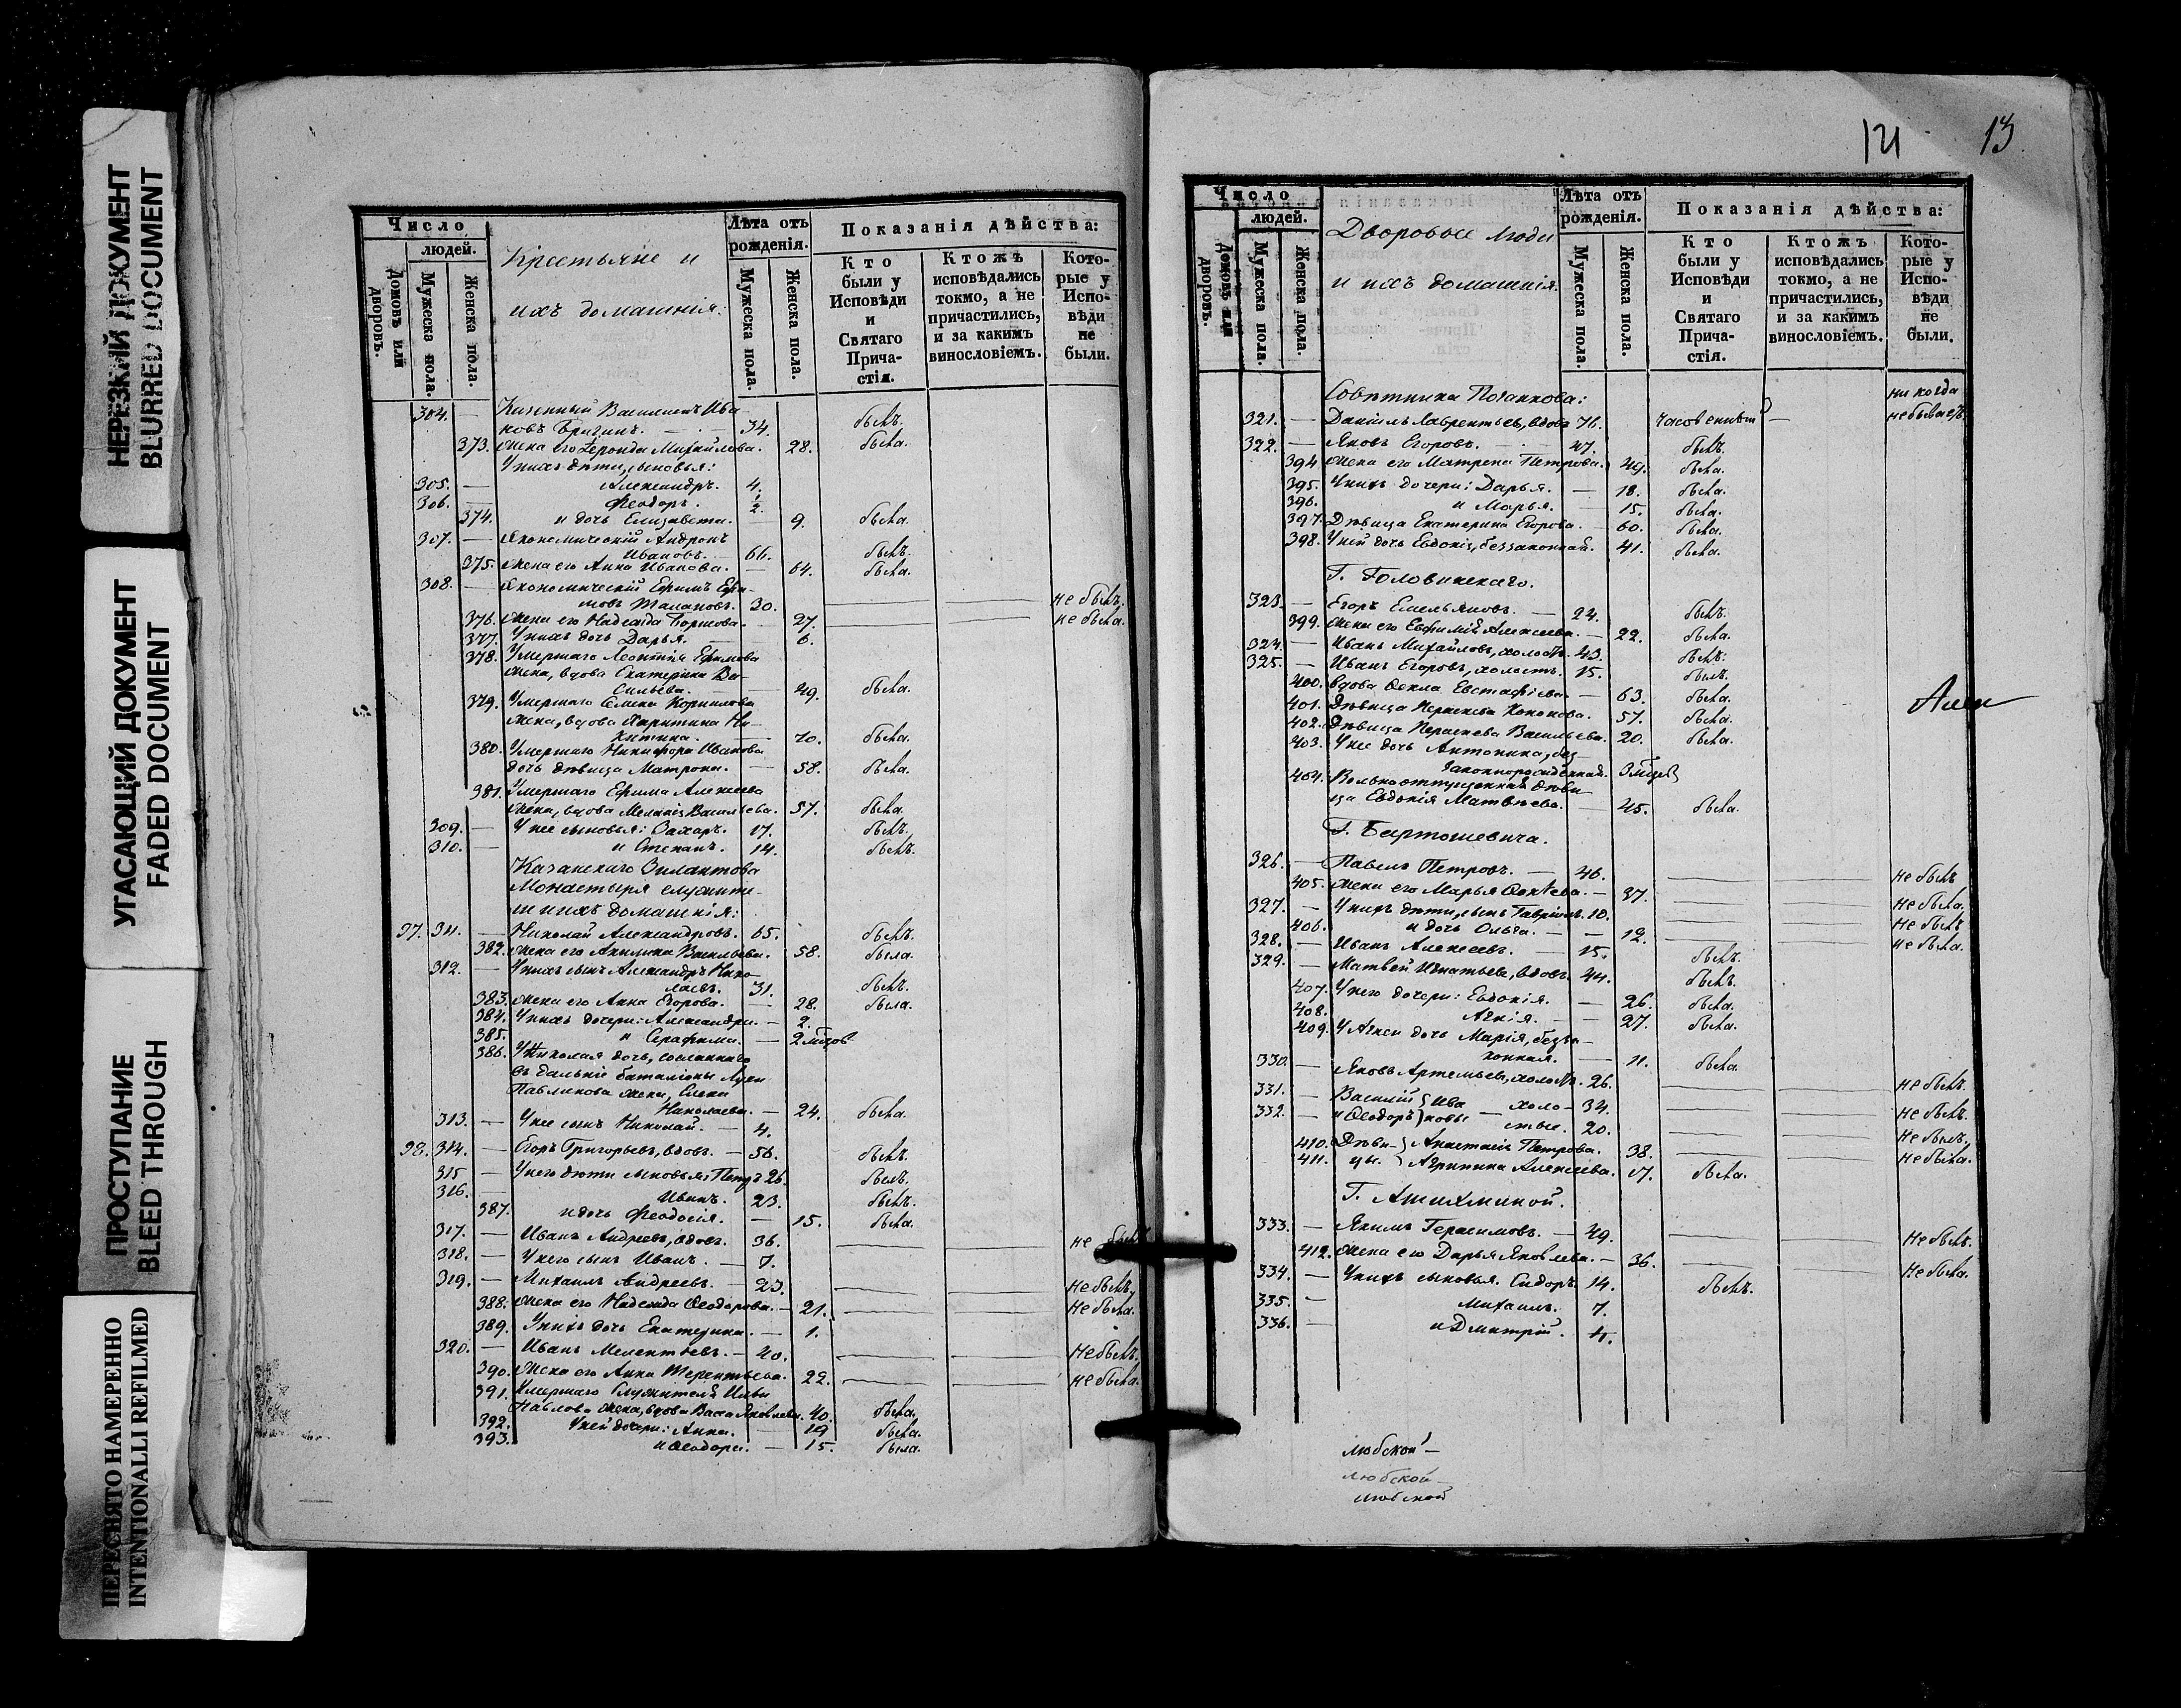 НЕРЕЗКИЙ ДОКУМЕНТ
BLURRED DOCUMENT
УГАСАЮЩИЙ ДОКУМЕНТ
FADED DOCUMENT
ПРОСТУПАНИЕ
BLEED THROUGH
ПЕРЕСНЯТО НАМЕРЕННО
INTENTIONALLI REFILMED
Число
людей.
Домовъ или дворовъ.
Мужеска пола.
Женска пола.
Крестьяне и
ихъ домашнія.
Лѣта отъ рожденія.
Мужеска пола.
Женска пола.
Показанія дѣйства:
Кто были у Исповѣди и Святаго Причастія.
Ктожъ исповѣдались токмо, а не причастились, и за какимъ винословіемъ.
Которые у Исповѣди не были.
304. — Казенный Василий Ива-
новъ — 34. былъ.
373. жена его Михайлова. 28. была.
У нихъ дѣти, сыновья:
305. — Александръ. 4.
306. — Феодоръ. 1/2.
374. и дочь Елизавета. — 9. была.
307. — Экономическій Андронъ
Ивановъ. 66. былъ.
375. жена его Анна Иванова. — 64. была.
308. — Экономическій Ефимъ Ефи-
мовъ Талановъ. 30. не былъ.
376. жена его Надежда — 27. не была.
377. У нихъ дочь Дарья. — 6.
378. Умершаго Леонтія Ефимова
жена, вдова Екатерина Ва-
сильева. — 49. была.
379. Умершаго Семена Корнилова
жена, вдова Харитина Ни-
китина. — 70. была.
380. Умершаго Никифора Иванова
дочь дѣвица Матрона. — 58. была.
381. Умершаго Ефима Алексеева
жена, вдова Меланія Васильева. 57. была.
309. — У нее сыновья: Захаръ. 17. былъ.
310. — и Степанъ. 14. былъ.
Казанскаго Зилантова
Монастыря служите-
ли и ихъ домашнія:
97. 311. — Николай Александровъ. 65. былъ.
382. жена его Акилина Васильева. 58. была.
312. — У нихъ сынъ Александръ Нико-
лаевъ. 31. былъ.
383. жена его Анна Егорова. — 28. была.
384. У нихъ дочери: Александра. — 2.
385. и Серафима. — 2 мѣсяцов
386. У Николая дочь, сосланнаго
въ дальніе баталіоны Луки
Павликова жена, Елена
Николаева. — 24. была.
313. — У нее сынъ Николай. — 4.
98. 314. — Егоръ Григорьевъ, вдовъ. — 56. былъ.
315 — У него дѣти сыновья: Петръ 26. былъ.
316. — Иванъ. 23. былъ.
387. и дочь Феодосія. — 15. была.
317. — Иванъ Андреевъ, вдовъ. 36. не былъ
318. — У него сынъ Иванъ. — 7.
319. — Михаилъ Андреевъ. — 23. не былъ.
388. жена его Надежда Ѳеодорова. — 21. не была.
389. У нихъ дочь Екатерина. — 1.
320. — Иванъ Мелентьевъ. — 40. не былъ.
390. жена его Анна Терентьева. 22. не была.
391. Умершаго Служителя Ильи
Павлова жена, вдова Васса Яковлева. 40. была.
392. У ней дочери: Анна. — 19 была.
393. и Ѳеодора. — 15. была.
121 13
Число
людей.
Домовъ или дворовъ.
Мужеска пола.
Женска пола.
Дворовые люди
и ихъ домашнія.
Лѣта отъ рожденія.
Мужеска пола.
Женска пола.
Показанія дѣйства:
Кто были у Исповѣди и Святаго Причастія.
Ктожъ исповѣдались токмо, а не причастились, и за какимъ винословіемъ.
Которые у Исповѣди не были.
Совѣтника
321. — Даніилъ Лаврентьев, вдовъ 76. — никогда не бываетъ
322. — Яковъ Егоровъ. — 47. былъ.
394 жена его Матрена Петрова. 49. была.
395. У нихъ дочери: Дарья. — 18. была.
396. и Марья. — 15. была.
397. Дѣвица Екатерина Егорова. — 60. была.
398. У ней дочь Евдокія, беззаконная. 41. была.
Г. Головинскаго.
323. — Егоръ Емельяновъ. — 24. былъ.
399. жена его Евфимія Алексеева. — 22. была.
324. — Иванъ Михайловъ, холостъ. 43. былъ.
325. — Иванъ Егоровъ, холостъ. 15. былъ.
400. вдова Ѳекла Евстафіева. — 63. была.
401. Дѣвица Параскева Кононова. 57. была.
402. Дѣвица Параскева Васильева. 20. была.
403. У нее дочь Антонина, без-
законнорожденная. 3 мѣсяцев
404. Вольноотпущенная дѣви-
ца Евдокія Матвѣева. — 45. была.
Г. Бартошевича.
326. — Павелъ Петровъ. — 46. не былъ
405. жена его Марья — 37. не была.
327. — У нихъ дѣти, сынъ Гавріилъ. 10. не былъ
406. и дочь Ольга. — 12. не была.
328. — Иванъ Алексеевъ. — 15. былъ.
329. — Матвей Игнатьевъ, вдовъ. 44. былъ.
407. У него дочери: Евдокія. — 26. была.
408. Агнія. — 27. была.
409. У Агнеи дочь Марія, безза-
конная. — 11. была.
330. — Яковъ Артемьевъ, холостъ. 26. не былъ.
331. — Василій } Ива — холо- 34. не былъ.
332. — и Ѳеодоръ } новы стые. 20. не былъ.
410. Дѣви- } Анастасія Петрова. 38. не была.
411. цы. } Агрипина Алексеева. 17. была.
Г. Ашихминой.
333. — Якимъ Герасимовъ. — 49. не былъ.
412. жена его Дарья Яковлева. — 36. не была.
334. — У нихъ сыновья. Сидоръ. 14. былъ.
335. — Михаилъ. 7.
336. — и Дмитрій. 4.
Алек
любской —
любской —
любской